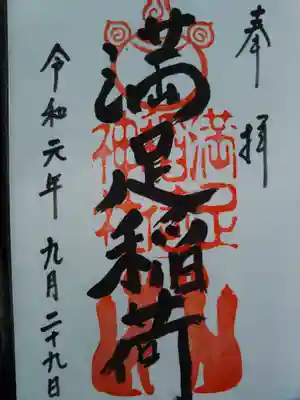 奉拝
満足稲荷
満足稲荷神社
令和元年九月二十九日